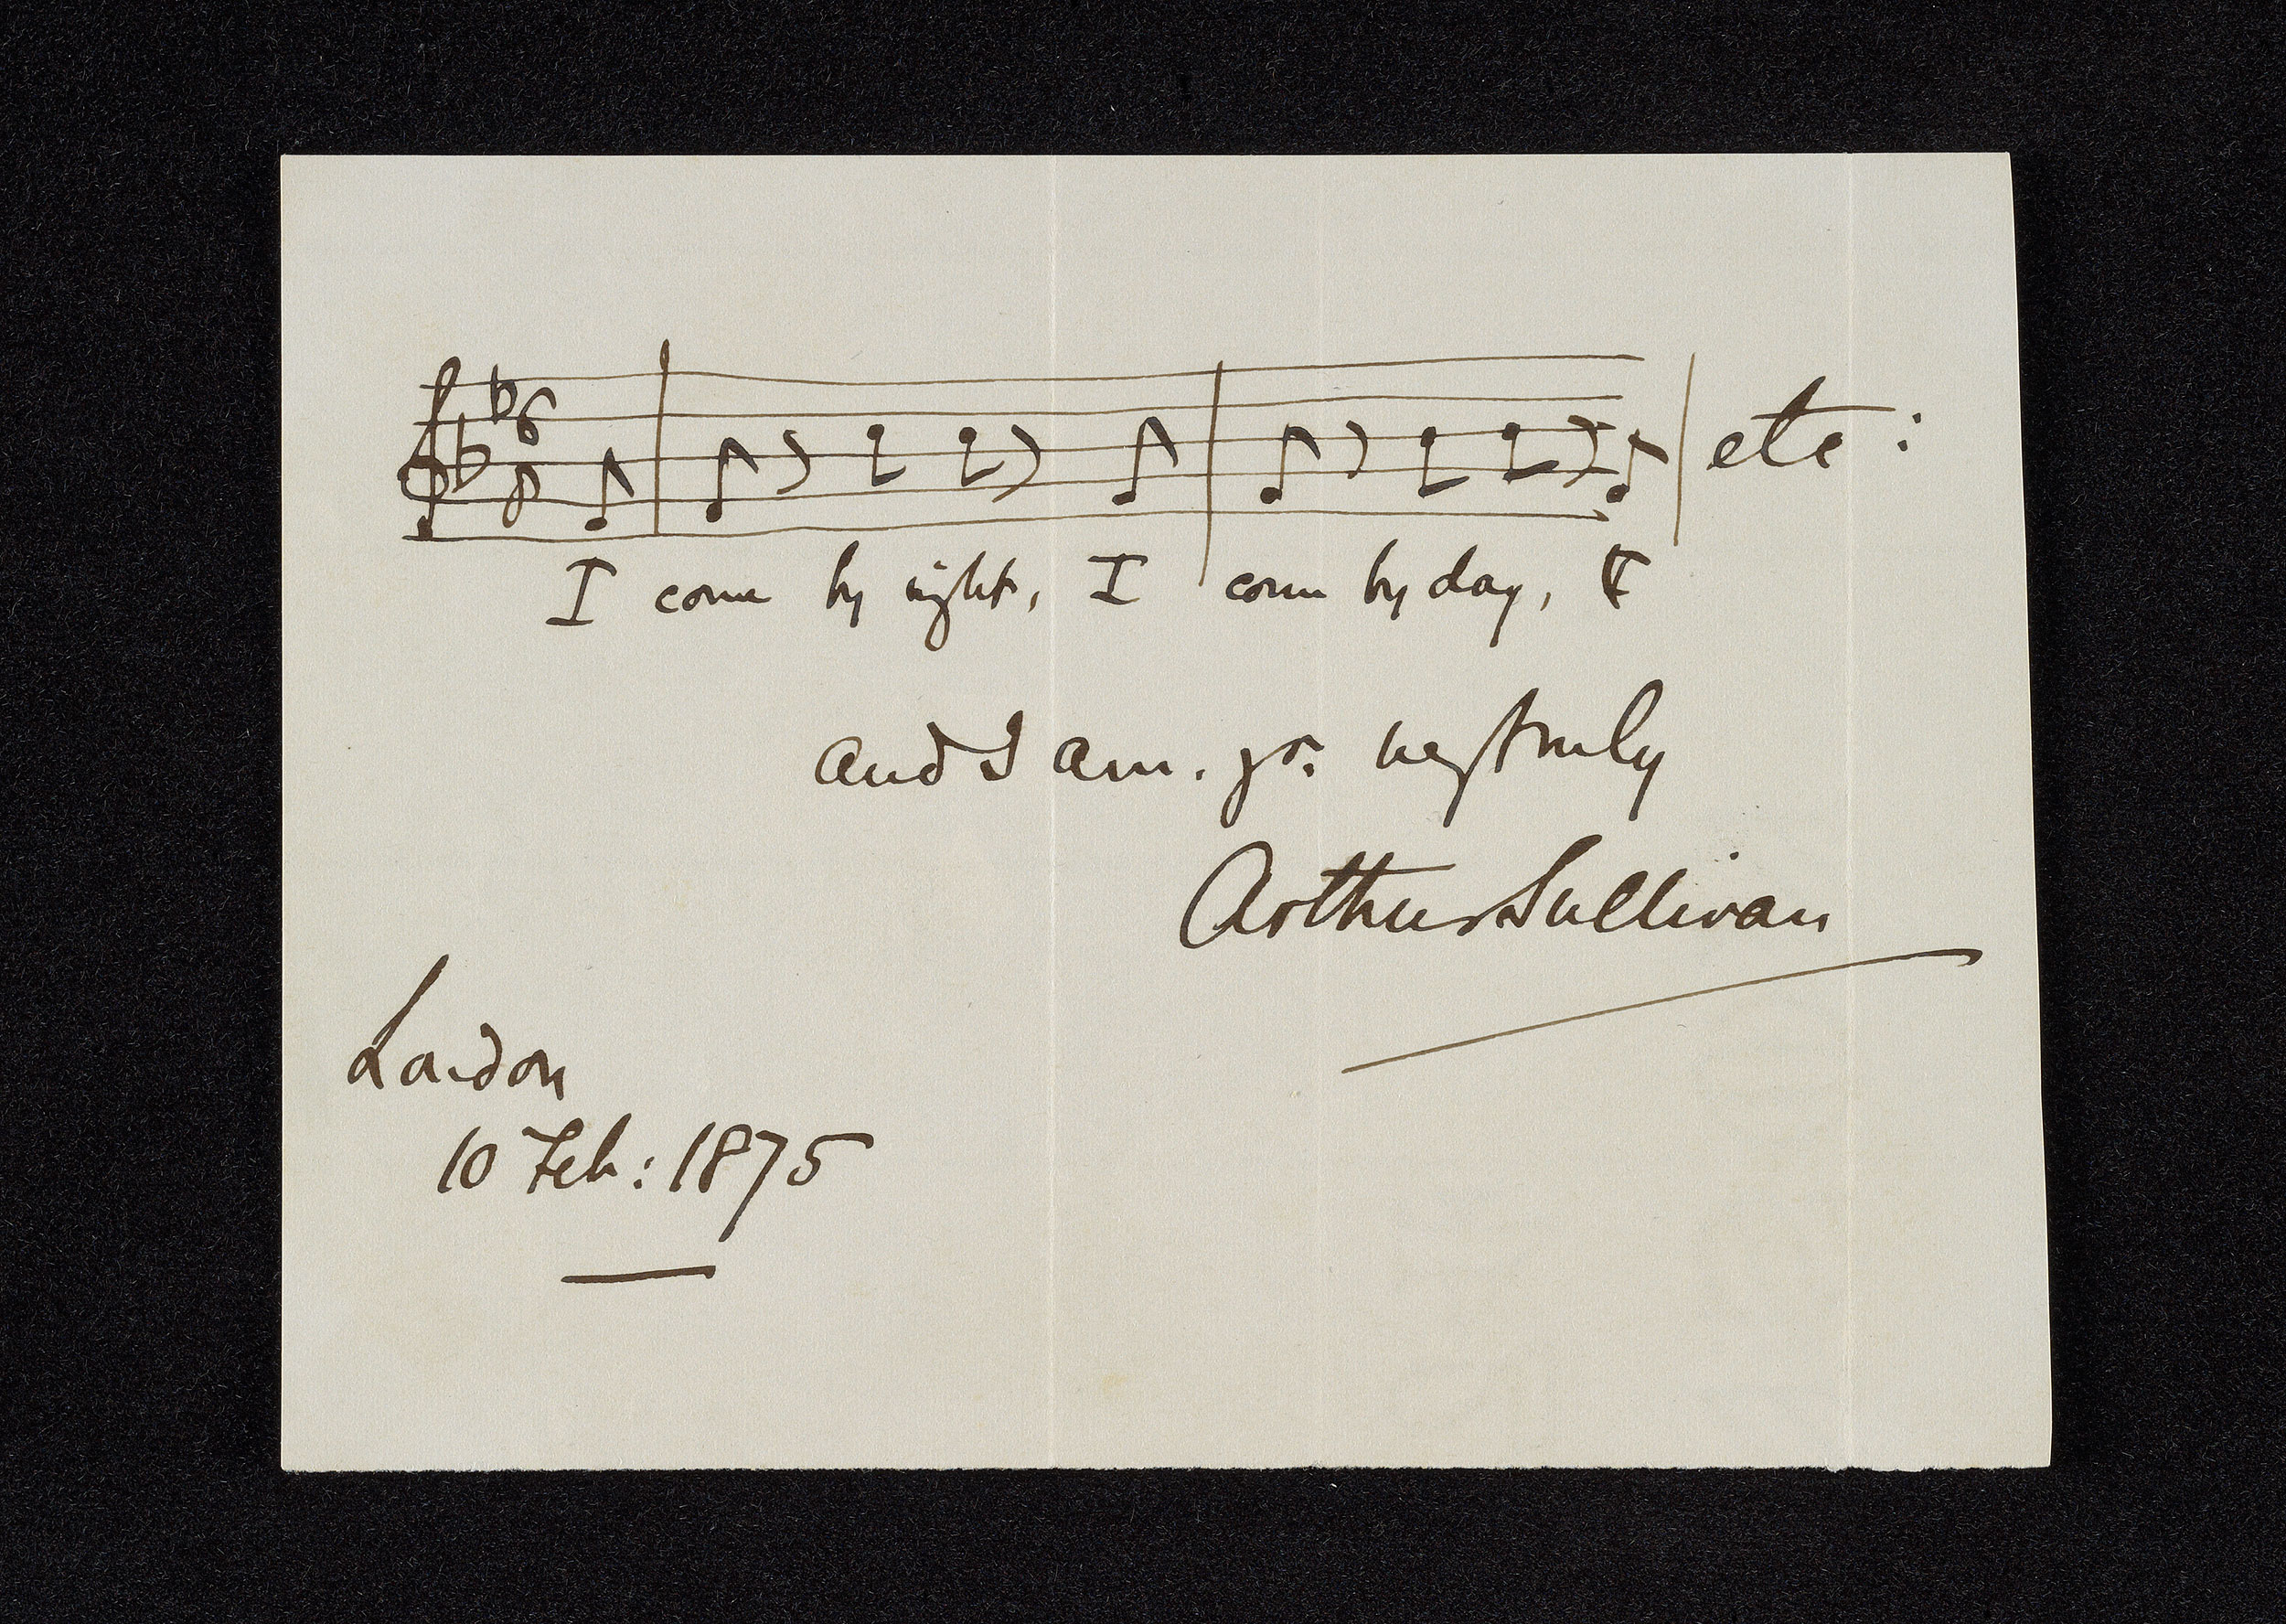 6
8
etc:
I come by night, I come by day, I
and I am. yrs. very truly
Arthur Sullivan
London
10 Feb: 1875